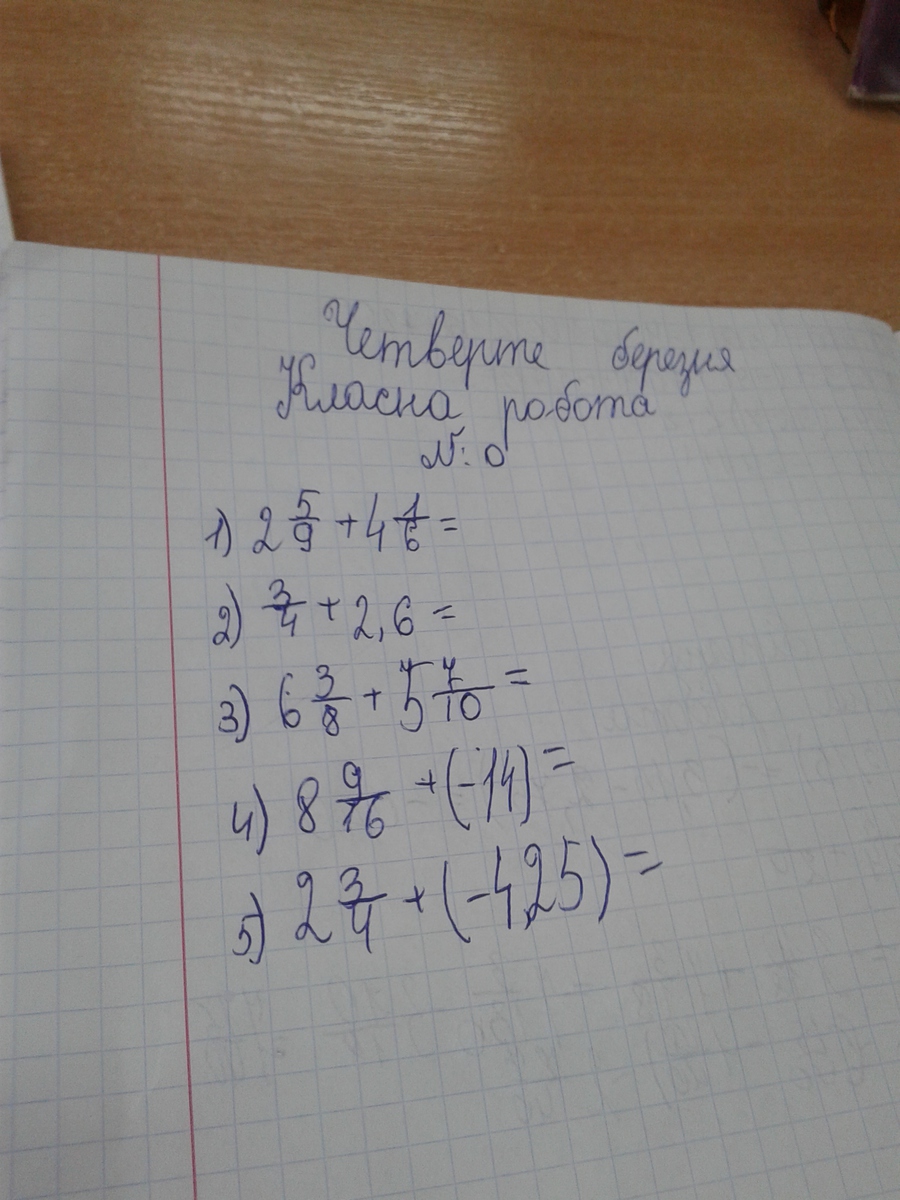 Четверте березня
Класна робота
№: 0
1) 2 5/9 + 4 1/6 =
2) 3/4 + 2,6 =
3) 6 3/8 + 5 7/10 =
4) 8 9/16 + (-14) =
5) 2 3/4 + (-4,25) =